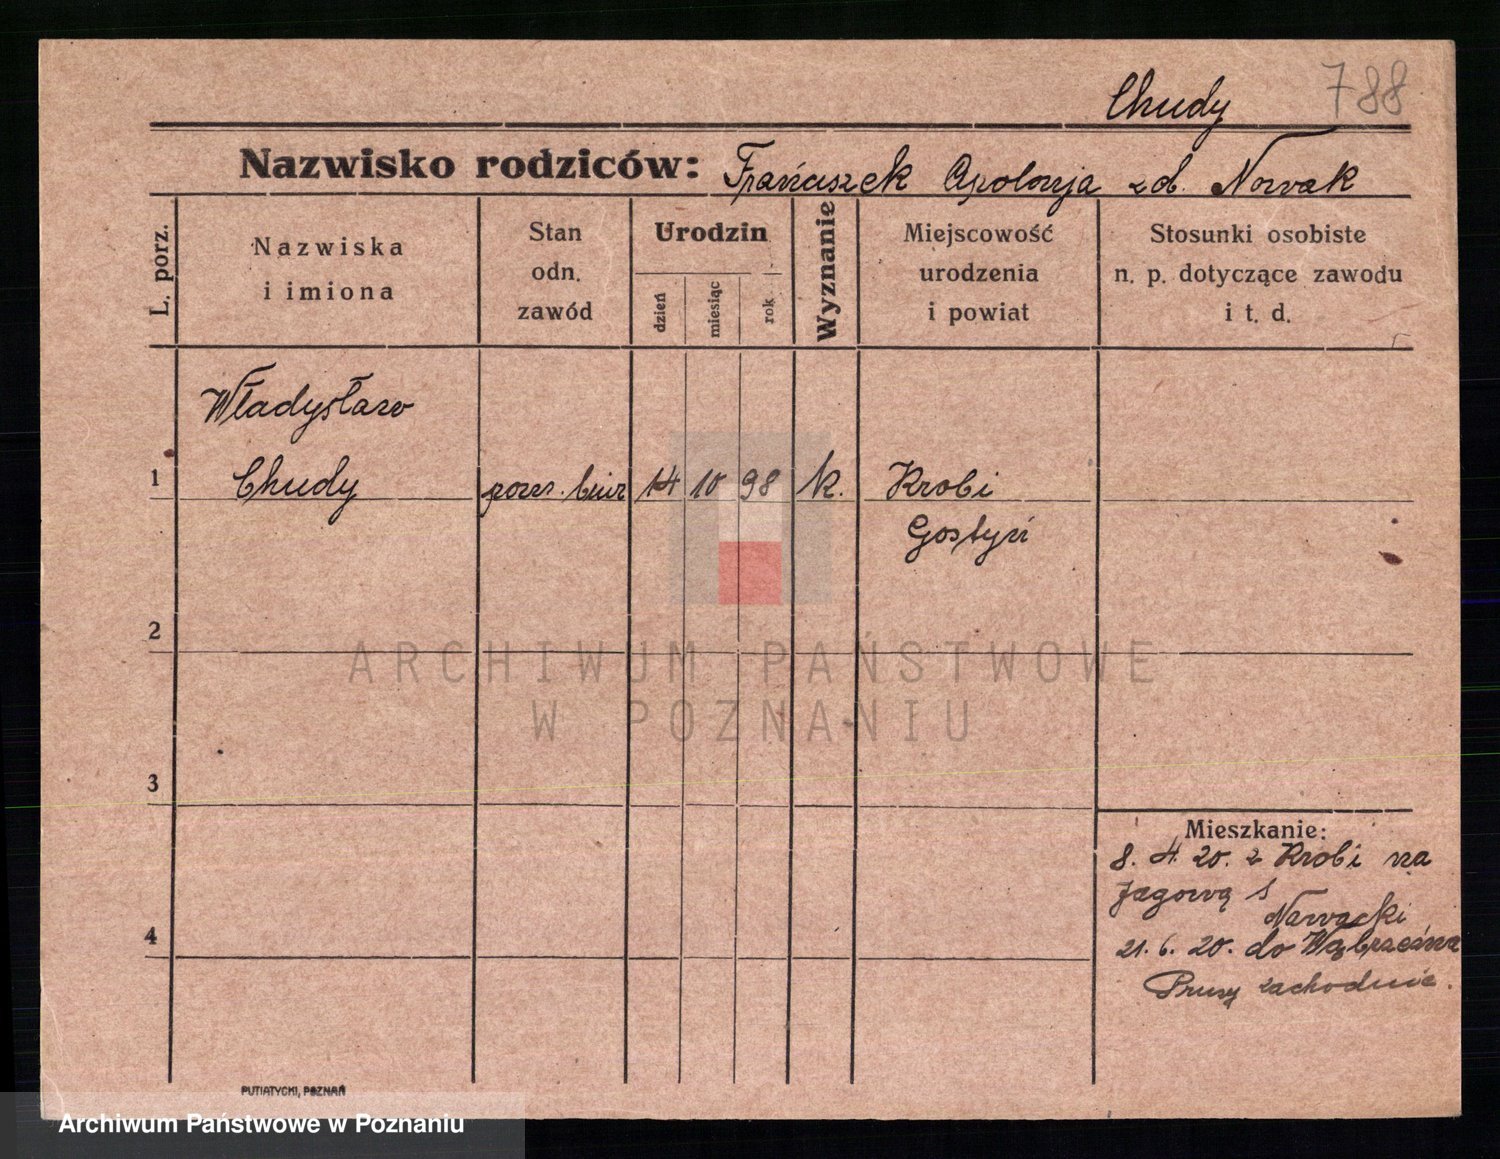 Chudy 788
Nazwisko rodziców: Franciszek Apolonja zd. Nowak
L. porz.
Nazwiska
i imiona
Stan
odn.
zawód
Urodzin
dzień
miesiąc
rok
Wyznanie
Miejscowość
urodzenia
i powiat
Stosunki osobiste
n. p. dotyczące zawodu
i t. d.
Władysław
1 Chudy pom. biur 14 10 98 k. Krobi
Gostyń
2
ARCHIWUM PAŃSTWOWE
W POZNANIU
3
Mieszkanie:
8. 4. 20. z Krobi na
Jagową 1
Nawacki
4
21. 6. 20. do Wąbrzeźna
Prusy zachodnie.
PUTIATYCKI, POZNAŃ
Archiwum Państwowe w Poznaniu